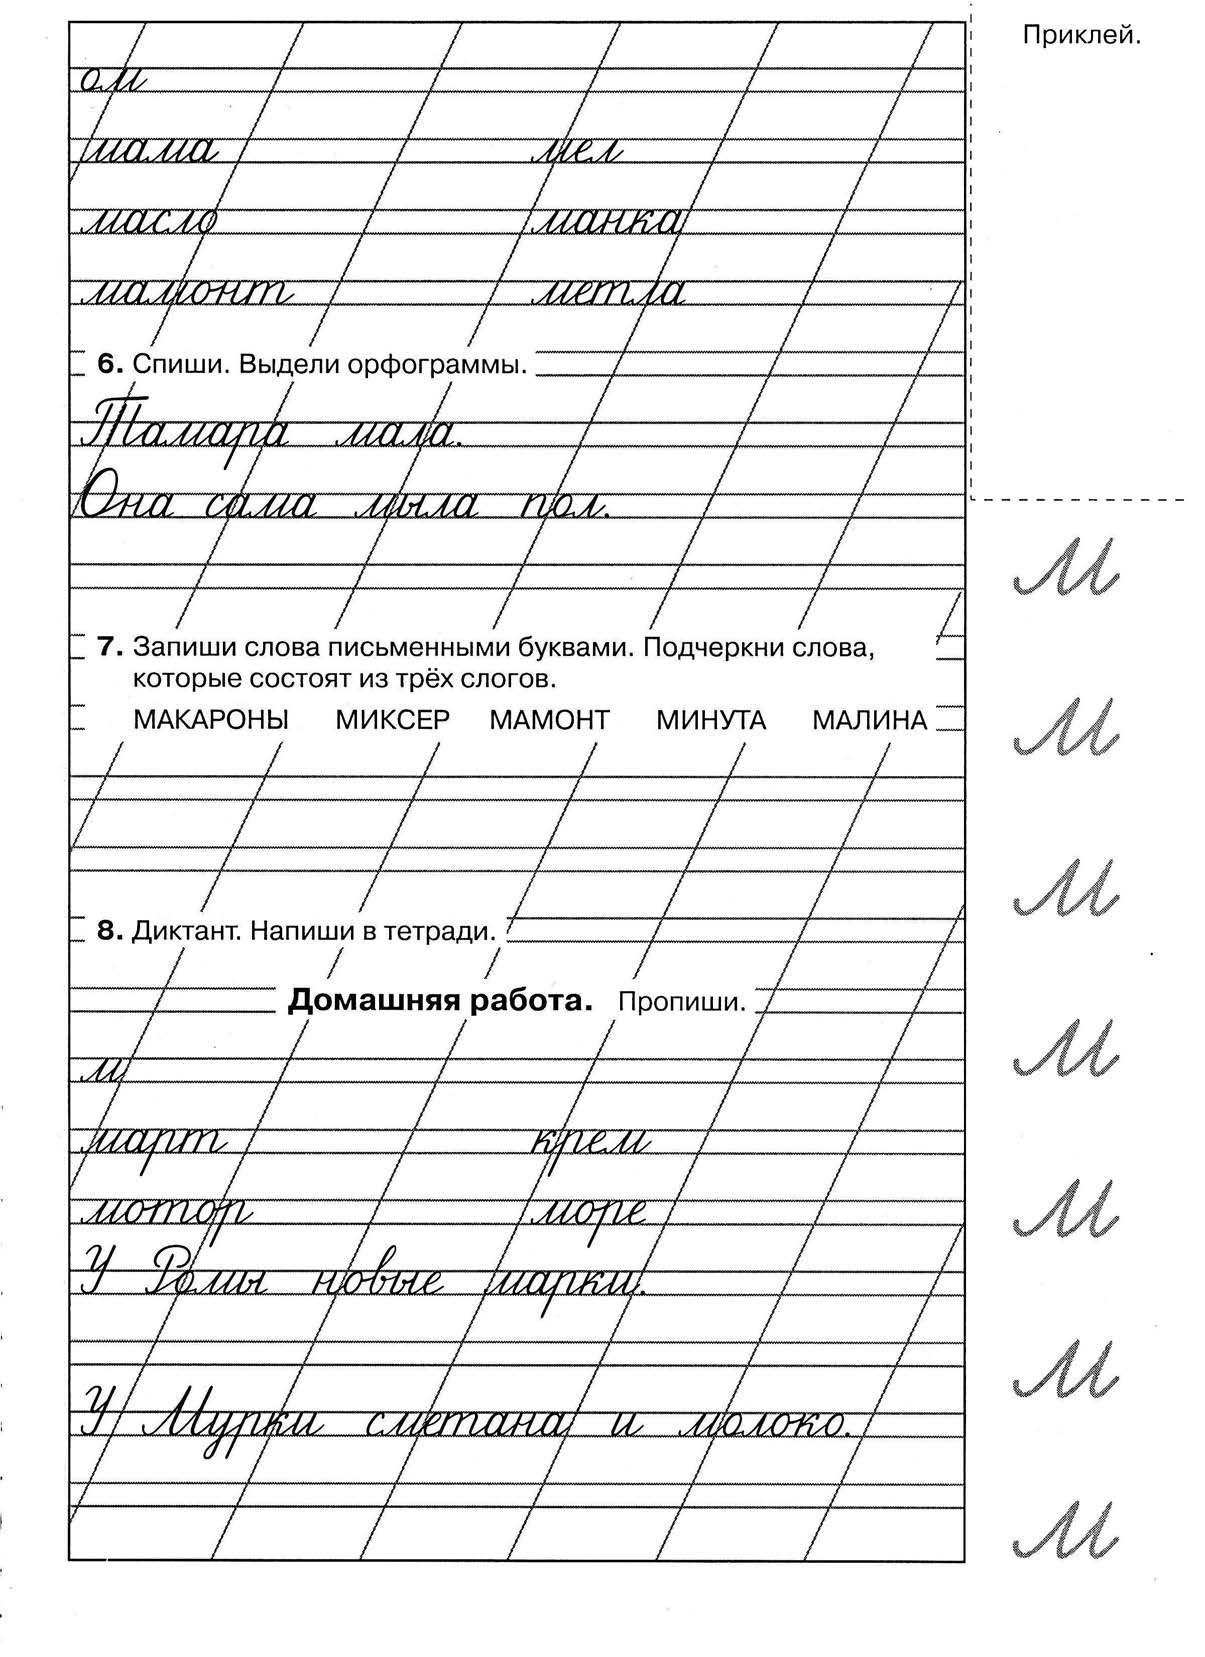 Приклей.
ом
мама мел
масло манка
мамонт метла
6. Спиши. Выдели орфограммы.
Тамара мала.
Она сама мыла пол.
м
7. Запиши слова письменными буквами. Подчеркни слова,
которые состоят из трёх слогов.
МАКАРОНЫ МИКСЕР МАМОНТ МИНУТА МАЛИНА
м
м
8. Диктант. Напиши в тетради.
Домашняя работа. Пропиши.
м
м
март крем
мотор море
м
У Ромы новые марки.
м
У Мурки сметана и молоко.
м